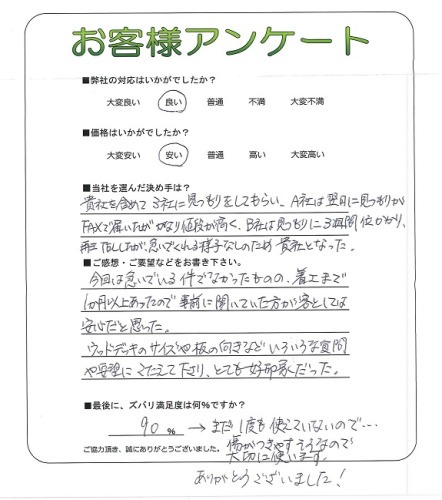 お客様アンケート
■弊社の対応はいかがでしたか？
大変良い 良い 普通 不満 大変不満
■価格はいかがでしたか？
大変安い 安い 普通 高い 大変高い
■当社を選んだ決め手は？
貴社を含めて3社に見つもりをしてもらい、A社は翌日に見つもりが
FAXで届いたがかなり値段が高く、B社は見つもりに3週間位かかり、
したが、急いでくれる様子なしのため貴社となった。
■ご感想・ご要望などをお書き下さい。
今回は急いでいる件でなかったものの、着工まで
1か月以上あったので事前に聞いていた方が客としては
安心だと思った。
ウッドデッキのサイズや板の向きなどいろいろな質問
や要望にこたえて下さり、とても好印象だった。
■最後に、ズバリ満足度は何%ですか？
90 % → まだ1度も使えていないので…
傷がつきやすそうなので
大切に使います。
ご協力頂き、誠にありがとうございました。
ありがとうございました！